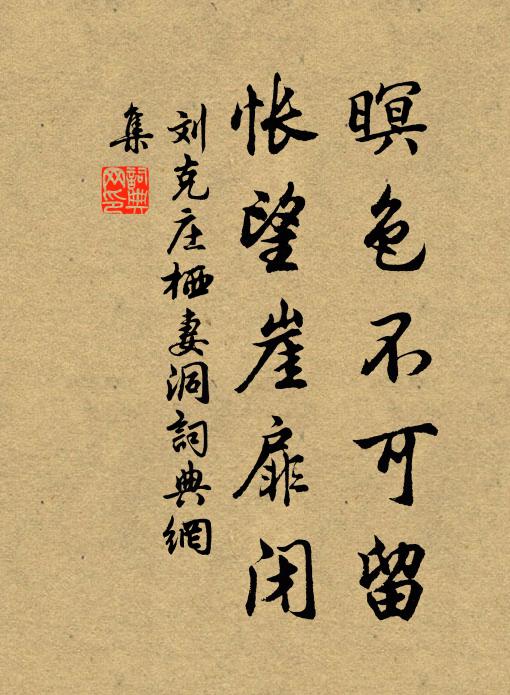 瞑色不可留
怅望崖扉闭
刘克庄栖妻洞詞典網
集
詞典网印